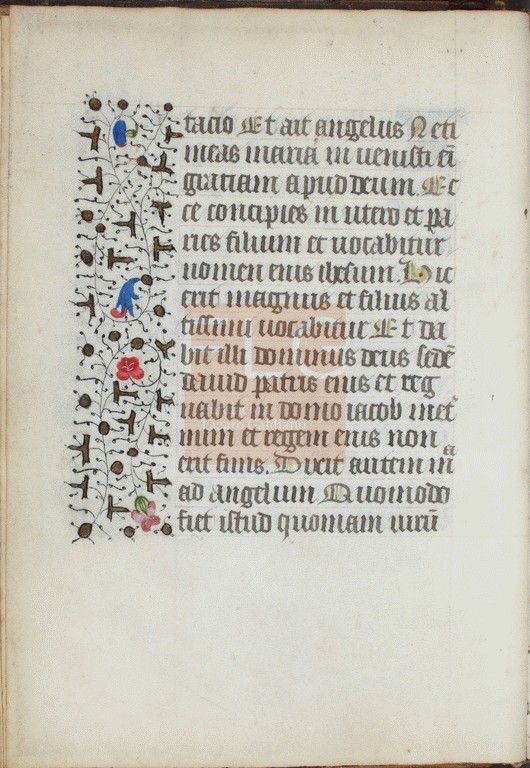 tacio Et ait angelus Ne ti
meas maria in uenisti eī
gratiam apud deum. Ec
ce concipies in utero et pa
ries filium et uocabitur
nomen eius ihesum. Hic
erit magnus et filius al
tissimi uocabitur Et da
bit illi dominus deus sedē
dauid patris eius et reg
nabit in domo iacob in et
num et regem eius non
erit finis. Dixit autem mā
ad angelum Quomodo
fiet istud quoniam uirū
FLC